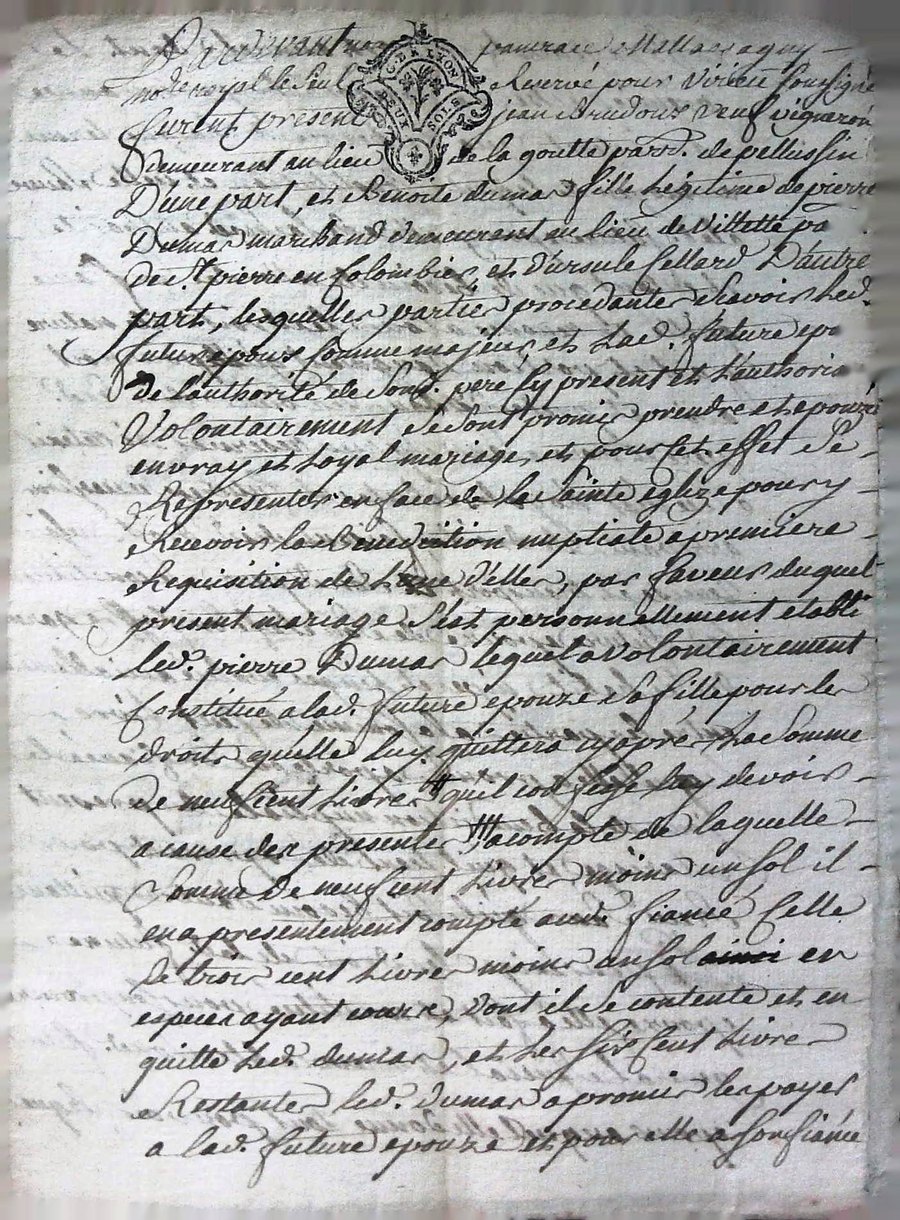 Pardevant
no.re royal le seul Reservé pour Virieu soussigné
furent present jean Arudoux veuf vigneron
Demeurant au lieu de la goutte paro.e de pellussin
D'une part, et Benoite dumas fille Legitime de pierre
Dumas marchand demeurant au lieu de Villette pa
de S.t pierre en Colombier, et d'ursule Cellard D'autre
part, lesquelles parties procedantes Scavoir Led.
futur epoux comme majeur, et Lad. future epo
de l'authorité de Sond. pere Cy present et L'authoris
Volontairement se sont promis prendre et epouzé
en vray et Loyal mariage, et pour cet effet Se
Representer en face de la Sainte eglize pour y
Recevoir la Benediction nuptiale a premiere
Requisition de L'une d'elles, par faveur duquel
present mariage S'est personnellement etabli
led. pierre Dumas, lequel a volontairement
Constitué a lad. future epouze Sa fille pour les
droits qu'elle luy quittera cy apres La Somme
De neuf cent Livres qu'il luy devoir
a cause des presentes acompte de laquelle
Somme De neuf cent Livres moins un sol il
en a presentement compté aud. fiancé Celle
de trois cent Livres moins un sol en
especes ayant cours, dont il Se contente et en
quitte Led. dumas, et Les Six Cent Livres
Restantes led. dumas a promis les payer
a lad. future epouze et pour elle a son fiancé
G.D.LYON
DEUX SOLS